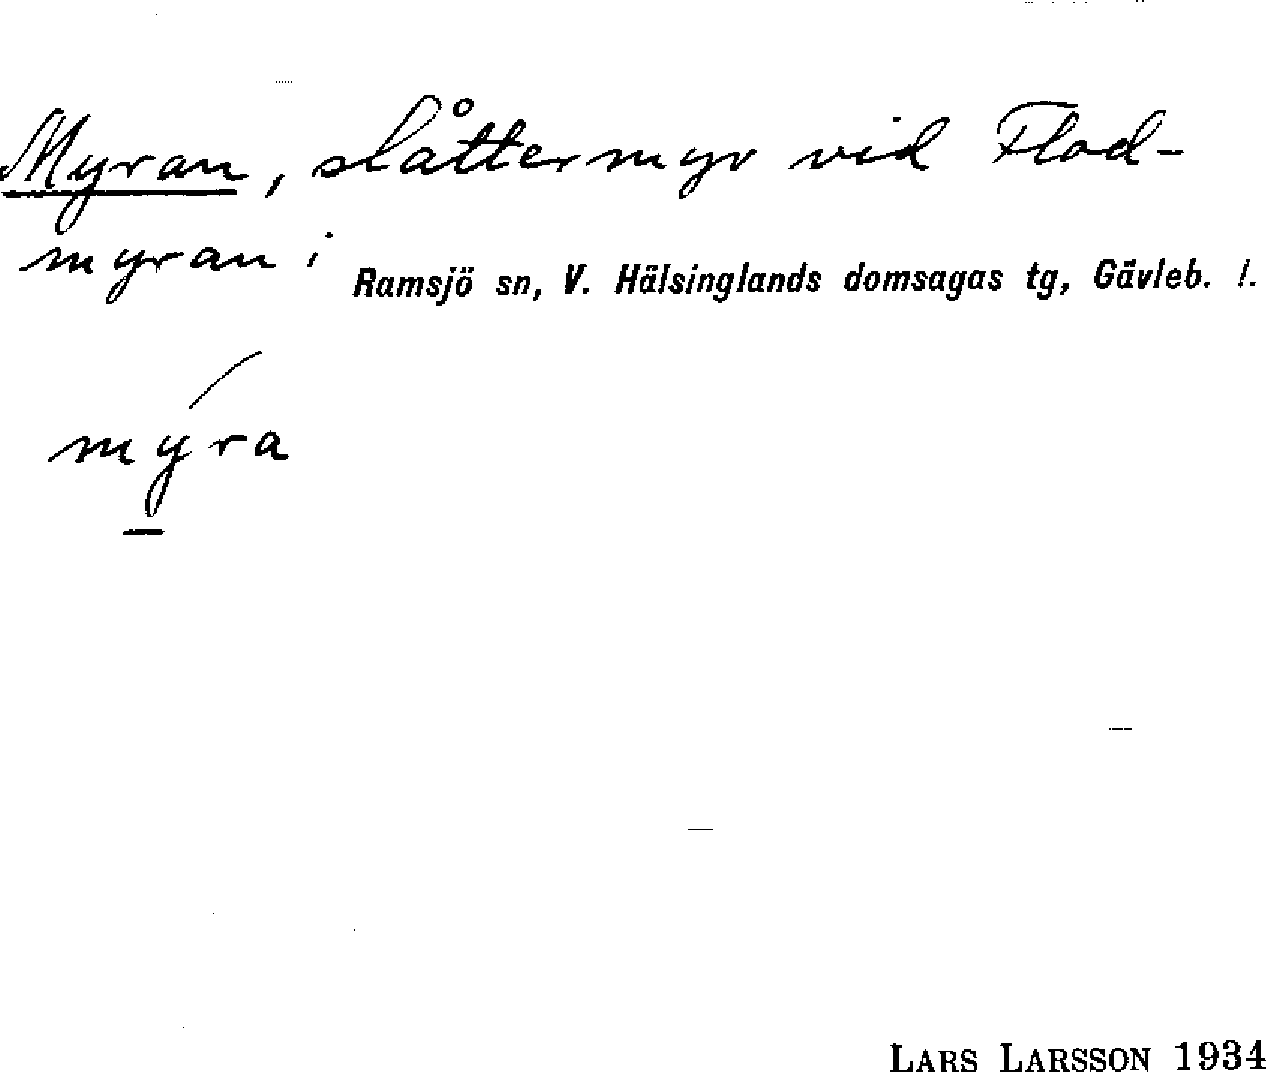 Myran, slåttermyr vid Flod-
myran i Ramsjö sn, V. Hälsinglands domsagas tg, Gävleb. l.
mýra
LARS LARSSON 1934